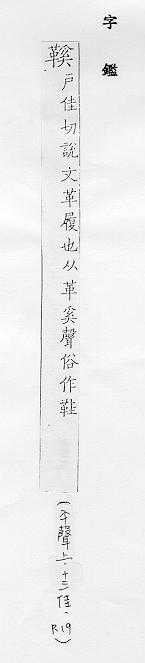 字鑑
鞵戶佳切說文革履也从革奚聲俗作鞋
(平聲上.十三佳.R19)